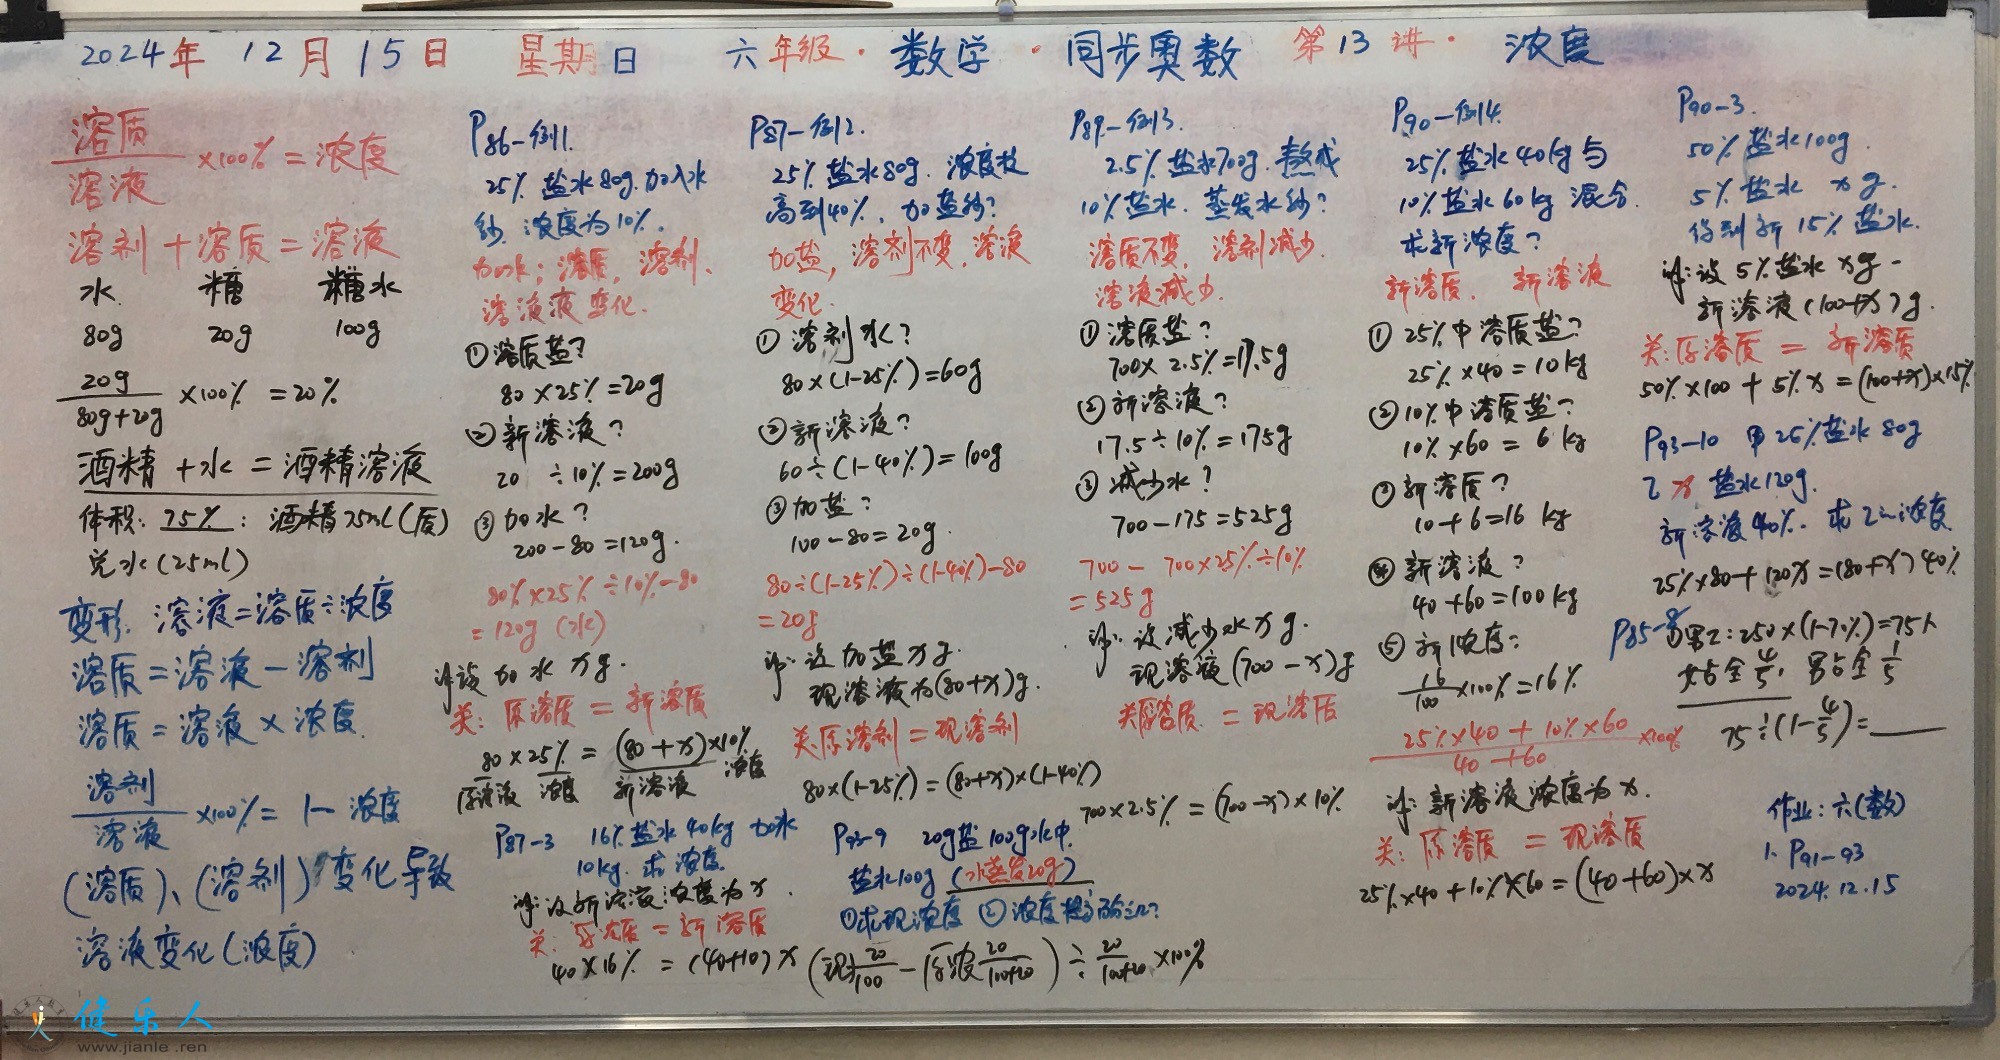 2024年 12月 15日 星期日 六年级·数学·同步奥数 第13讲· 浓度
溶质
溶液
×100% = 浓度
溶剂+溶质=溶液
水 糖 糖水
80g 20g 100g
20g
80g+20g
×100% =20%
酒精+水=酒精溶液
体积: 75%: 酒精75ml(质)
兑水(25ml)
变形: 溶液=溶质÷浓度
溶质=溶液-溶剂
溶质=溶液×浓度
溶剂
溶液
×100%= 1-浓度
(溶质)、(溶剂)变化导致
溶液变化(浓度)
P86-例1.
25%盐水80g.加入水
浓度为10%.
加水; 溶质, 溶剂、
溶液 变化.
①溶质盐?
80×25%=20g
②新溶液?
20 ÷10%=200g
③加水?
200-80=120g.
80%×25%÷10%-80
=120g (水)
设加水xg.
关: 原溶质=新溶质
80×25%=(80+x)×10%
原溶液 浓度 新溶液 浓度
P87-3 16%盐水40kg 加水
10kg. 求浓度
设新溶液浓度为x.
关: 原溶质=新溶质
40×16% = (40+10)x
P87-例2.
25%盐水80g. 浓度提
高到40%. 加盐?
加盐, 溶剂不变, 溶液
变化.
①溶剂水?
80×(1-25%)=60g
②新溶液?
60÷(1-40%)=100g
③加盐?
100-80=20g.
80÷(1-25%)÷(1-40%)-80
=20g
设加盐xg.
现溶液为(80+x)g.
关:原溶剂=现溶剂
80×(1-25%)=(80+x)×(1-40%)
P93-9 20g盐100g水中.
盐水100g (水蒸发20g)
①求现浓度 ②浓度
(现20/100-原浓20/100+20)÷20/100+20×100%
P89-例3.
2.5%盐水700g. 熬成
10%盐水. 蒸发水?
溶质不变, 溶剂减少.
溶液减少.
①溶质盐?
700×2.5%=17.5g
②新溶液?
17.5÷10%=175g
③减少水?
700-175=525g
700-700×2.5%÷10%
=525g
设减少水xg.
现溶液(700-x)g
关:原溶质=现溶质
700×2.5%=(700-x)×10%
P90-例4.
25%盐水40kg与
10%盐水60kg 混合.
求新浓度?
新溶质. 新溶液
①25%中溶质盐?
25%×40=10kg
②10%中溶质盐?
10%×60=6kg
③新溶质?
10+6=16 kg
④新溶液?
40+60=100kg
⑤新浓度:
16
100
×100%=16%
25%×40+10%×60
40+60
×100%
新溶液浓度为x.
关: 原溶质=现溶质
25%×40+10%×60=(40+60)×x
P90-3.
50%盐水100g.
5%盐水 xg.
得到新15%盐水.
设5%盐水xg-
新溶液(100+x)g.
关:原溶质=新溶质
50%×100+5%x=(100+x)×15%
P93-10 甲25%盐水80g
乙x盐水120g.
新溶液40%. 求乙浓度
25%×80+120x=(80+x)40%
P85-8 ①男2:250×(1-70%)=75人
女占全4/5, 男占全1/5
75÷(1-4/5)=
作业:六(数)
1. P91-93
2024.12.15
健乐人
www.jianle.ren